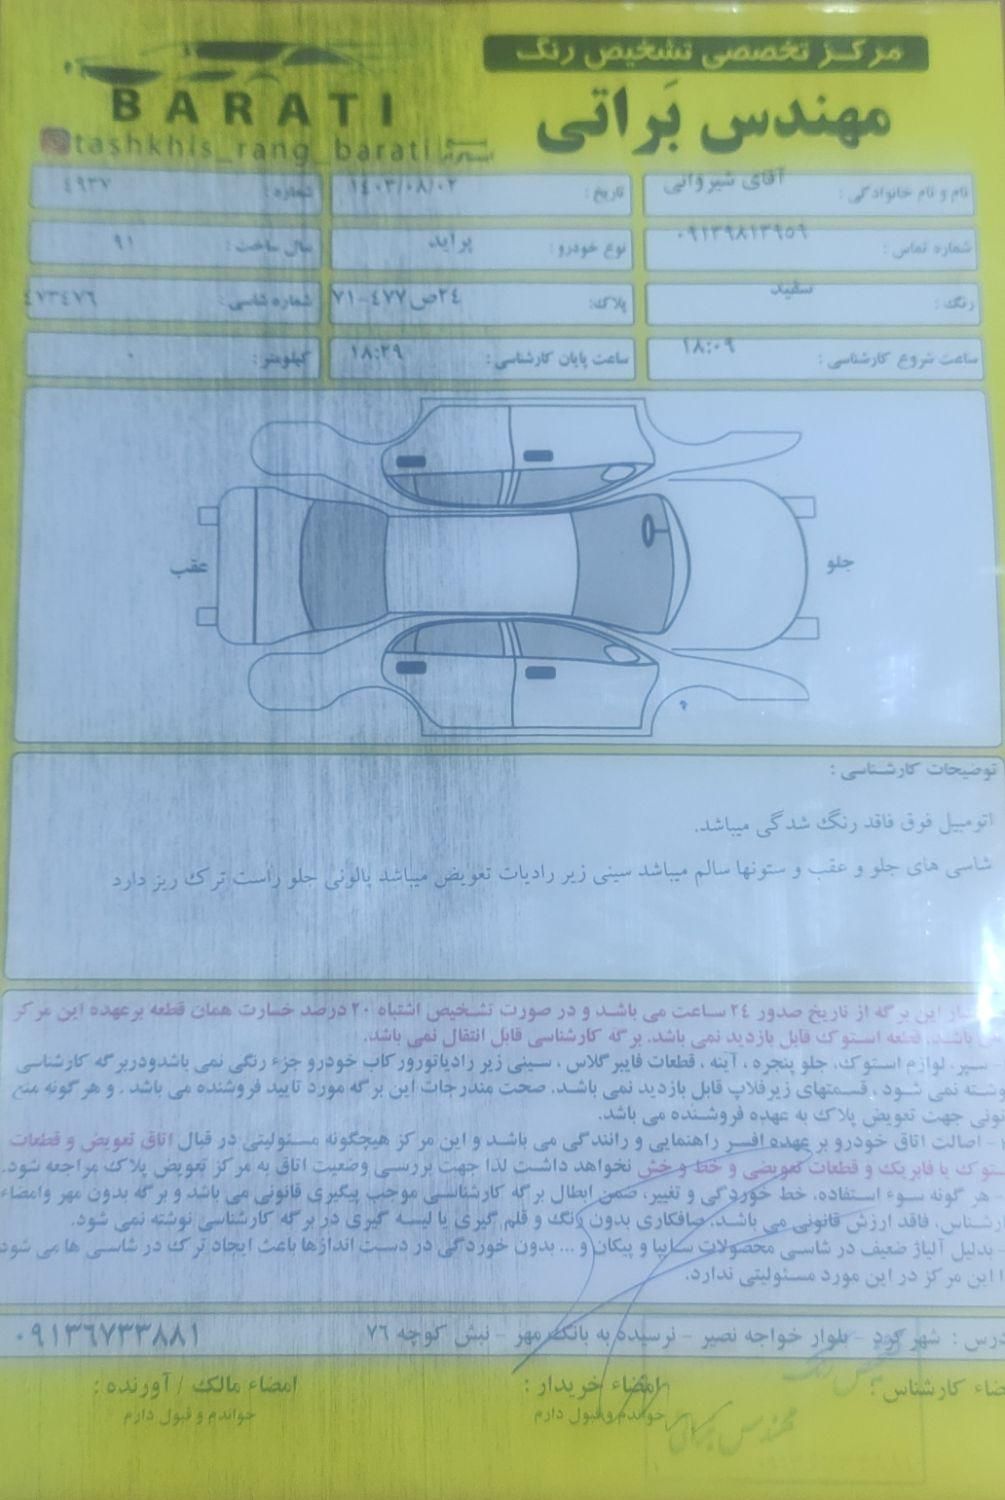 مرکز تخصصی تشخیص رنگ
مهندس بَراتی
BARATI
tashkhis_rang_barati
نام و نام خانوادگی : آقای شیروانی
تاریخ : ۱۴۰۳/۰۸/۰۲
شماره : ۴۹۳۷
شماره تماس : ۰۹۱۳۹۸۱۳۹۵۹
نوع خودرو : پراید
سال ساخت : ۹۱
رنگ : سفید
پلاک: ۲۴ص۴۷۷-۷۱
شماره شاسی : ۴۷۳۴۷۶
ساعت شروع کارشناسی : ۱۸:۰۹
ساعت پایان کارشناسی : ۱۸:۲۹
کیلومتر : ۰
جلو
عقب
توضیحات کارشناسی :
اتومبیل فوق فاقد رنگ شدگی میباشد.
شاسی های جلو و عقب و ستونها سالم میباشد سینی زیر رادیات تعویض میباشد پالونی جلو راست ترک ریز دارد
این برگه از تاریخ صدور ۲۴ ساعت می باشد و در صورت تشخیص اشتباه ۲۰ درصد خسارت همان قطعه برعهده این مرکز
باشد. قطعه استوک قابل بازدید نمی باشد. برگه کارشناسی قابل انتقال نمی باشد.
سپر، لوازم استوک، جلو پنجره ، آینه ، قطعات فایبرگلاس ، سینی زیر رادیاتورورکاب خودرو جزء رنگی نمی باشدودربرگه کارشناسی
نمی شود . قسمتهای زیرفلاپ قابل بازدید نمی باشد. صحت مندرجات این برگه مورد تایید فروشنده می باشد . و هر گونه منع
جهت تعویض پلاک به عهده فروشنده می باشد.
- اصالت اتاق خودرو بر عهده افسر راهنمایی و رانندگی می باشد و این مرکز هیچگونه مسئولیتی در قبال اتاق تعویض و قطعات
یا فابریک و قطعات تعویضی و خط و خش نخواهد داشت لذا جهت بررسی وضعیت اتاق به مرکز تعویض پلاک مراجعه شود.
هر گونه سوء استفاده، خط خوردگی و تغییر، ضمن ابطال برگه کارشناسی موجب پیگیری قانونی می باشد و برگه بدون مهر وامضاء
فاقد ارزش قانونی می باشد. صافکاری بدون رنگ و قلم گیری یا لیسه گیری در برگه کارشناسی نوشته نمی شود.
بدلیل آلیاژ ضعیف در شاسی محصولات سایپا و پیکان و ... بدون خوردگی در دست اندازها باعث ایجاد ترک در شاسی ها می شود
این مرکز در این مورد مسئولیتی ندارد.
شهرکرد - بلوار خواجه نصیر - نرسیده به بانک مهر - نبش کوچه ۷۶
۰۹۱۳۶۷۳۳۸۸۱
کارشناس :
امضاء خریدار :
امضاء مالک / آورنده :
خواندم و قبول دارم
خواندم و قبول دارم